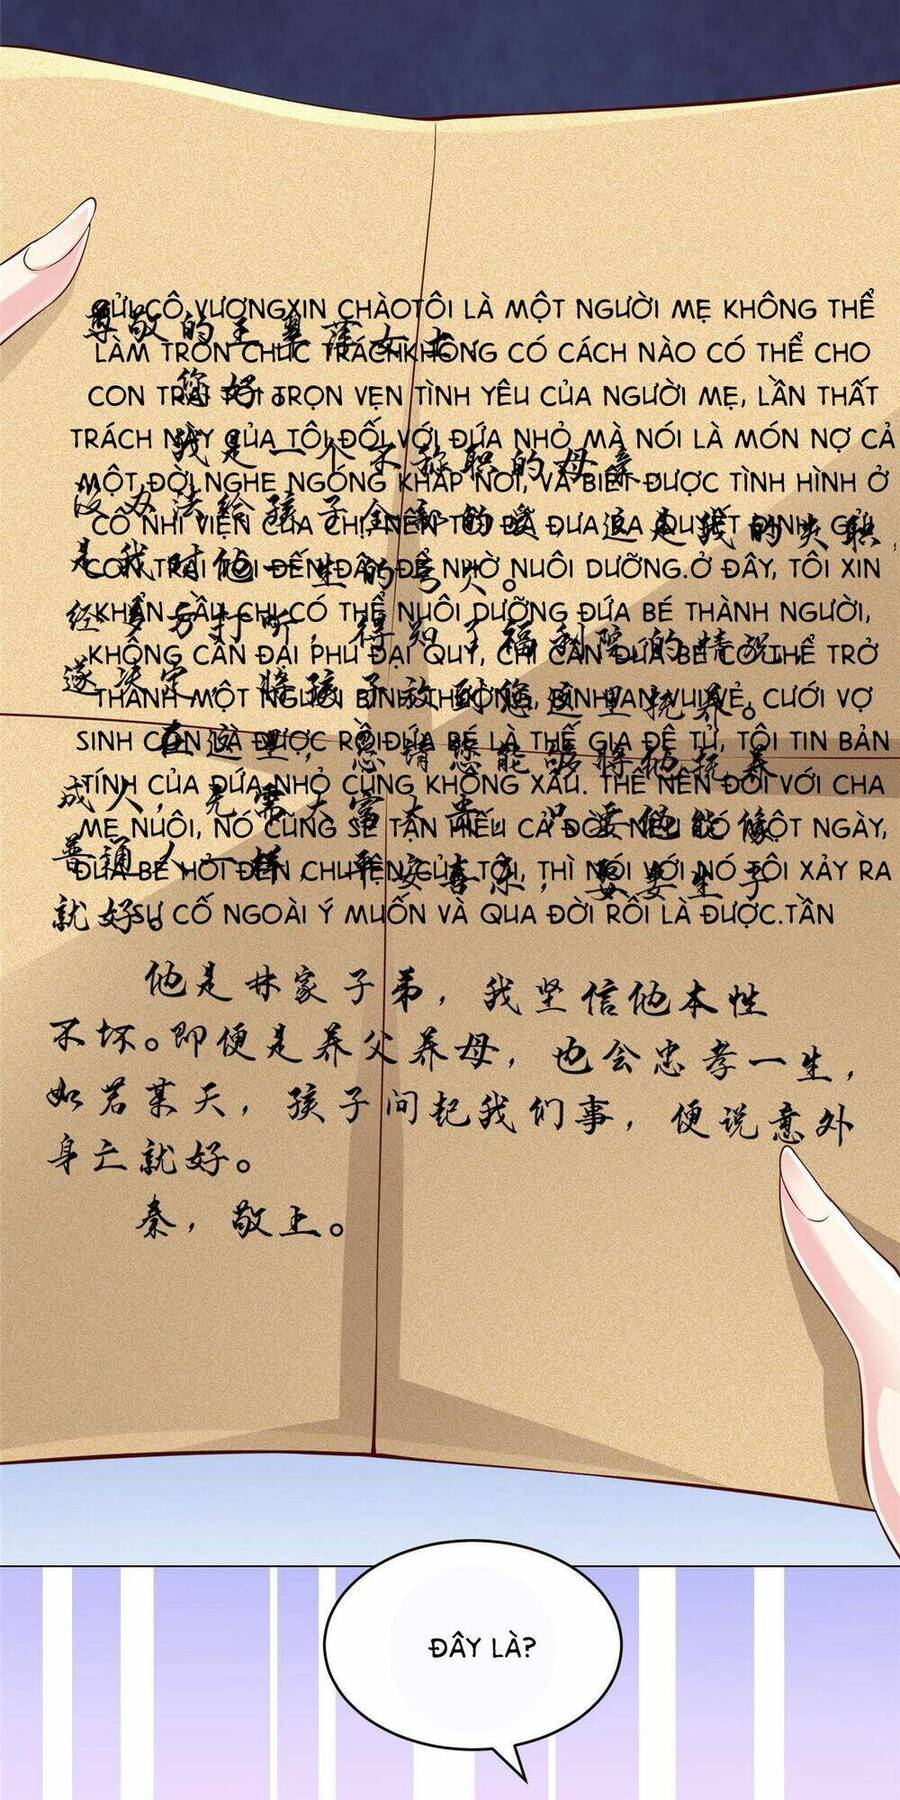 GỬI CÔ VƯƠNGXIN CHÀOTÔI LÀ MỘT NGƯỜI MẸ KHÔNG THỂ
LÀM TRÒN CHỨC TRÁCHKHÔNG CÓ CÁCH NÀO CÓ THỂ CHO
CON TRAI TÔI TRỌN VẸN TÌNH YÊU CỦA NGƯỜI MẸ, LẦN THẤT
TRÁCH NÀY CỦA TÔI ĐỐI VỚI ĐỨA NHỎ MÀ NÓI LÀ MÓN NỢ CẢ
MỘT ĐỜI.NGHE NGÓNG KHẮP NƠI, VÀ BIẾT ĐƯỢC TÌNH HÌNH Ở
CÔ NHI VIỆN CỦA CHỊ, NÊN TÔI ĐÃ ĐƯA RA QUYẾT ĐỊNH GỬI
CON TRAI TÔI ĐẾN ĐÂY ĐỂ NHỜ NUÔI DƯỠNG.Ở ĐÂY, TÔI XIN
KHẨN CẦU CHỊ CÓ THỂ NUÔI DƯỠNG ĐỨA BÉ THÀNH NGƯỜI,
KHÔNG CẦN ĐẠI PHÚ ĐẠI QUÝ, CHỈ CẦN ĐỨA BÉ CÓ THỂ TRỞ
THÀNH MỘT NGƯỜI BÌNH THƯỜNG, BÌNH AN VUI VẺ, CƯỚI VỢ
SINH CON LÀ ĐƯỢC RỒI.ĐỨA BÉ LÀ THẾ GIA ĐỆ TỬ, TÔI TIN BẢN
TÍNH CỦA ĐỨA NHỎ CŨNG KHÔNG XẤU. THẾ NÊN ĐỐI VỚI CHA
MẸ NUÔI, NÓ CŨNG SẼ TẬN HIẾU CẢ ĐỜI. NẾU CÓ MỘT NGÀY,
ĐỨA BÉ HỎI ĐẾN CHUYỆN CỦA TÔI, THÌ NÓI VỚI NÓ TÔI XẢY RA
SỰ CỐ NGOÀI Ý MUỐN VÀ QUA ĐỜI RỒI LÀ ĐƯỢC.TẦN
您好。
我是一个不称职的母亲
就好。
他是林家子弟，我坚信他本性
不坏。即便是养父养母，也会忠孝一生，
如若某天，孩子问起我们事，便说意外
身亡就好。
秦，敬上。
ĐÂY LÀ?